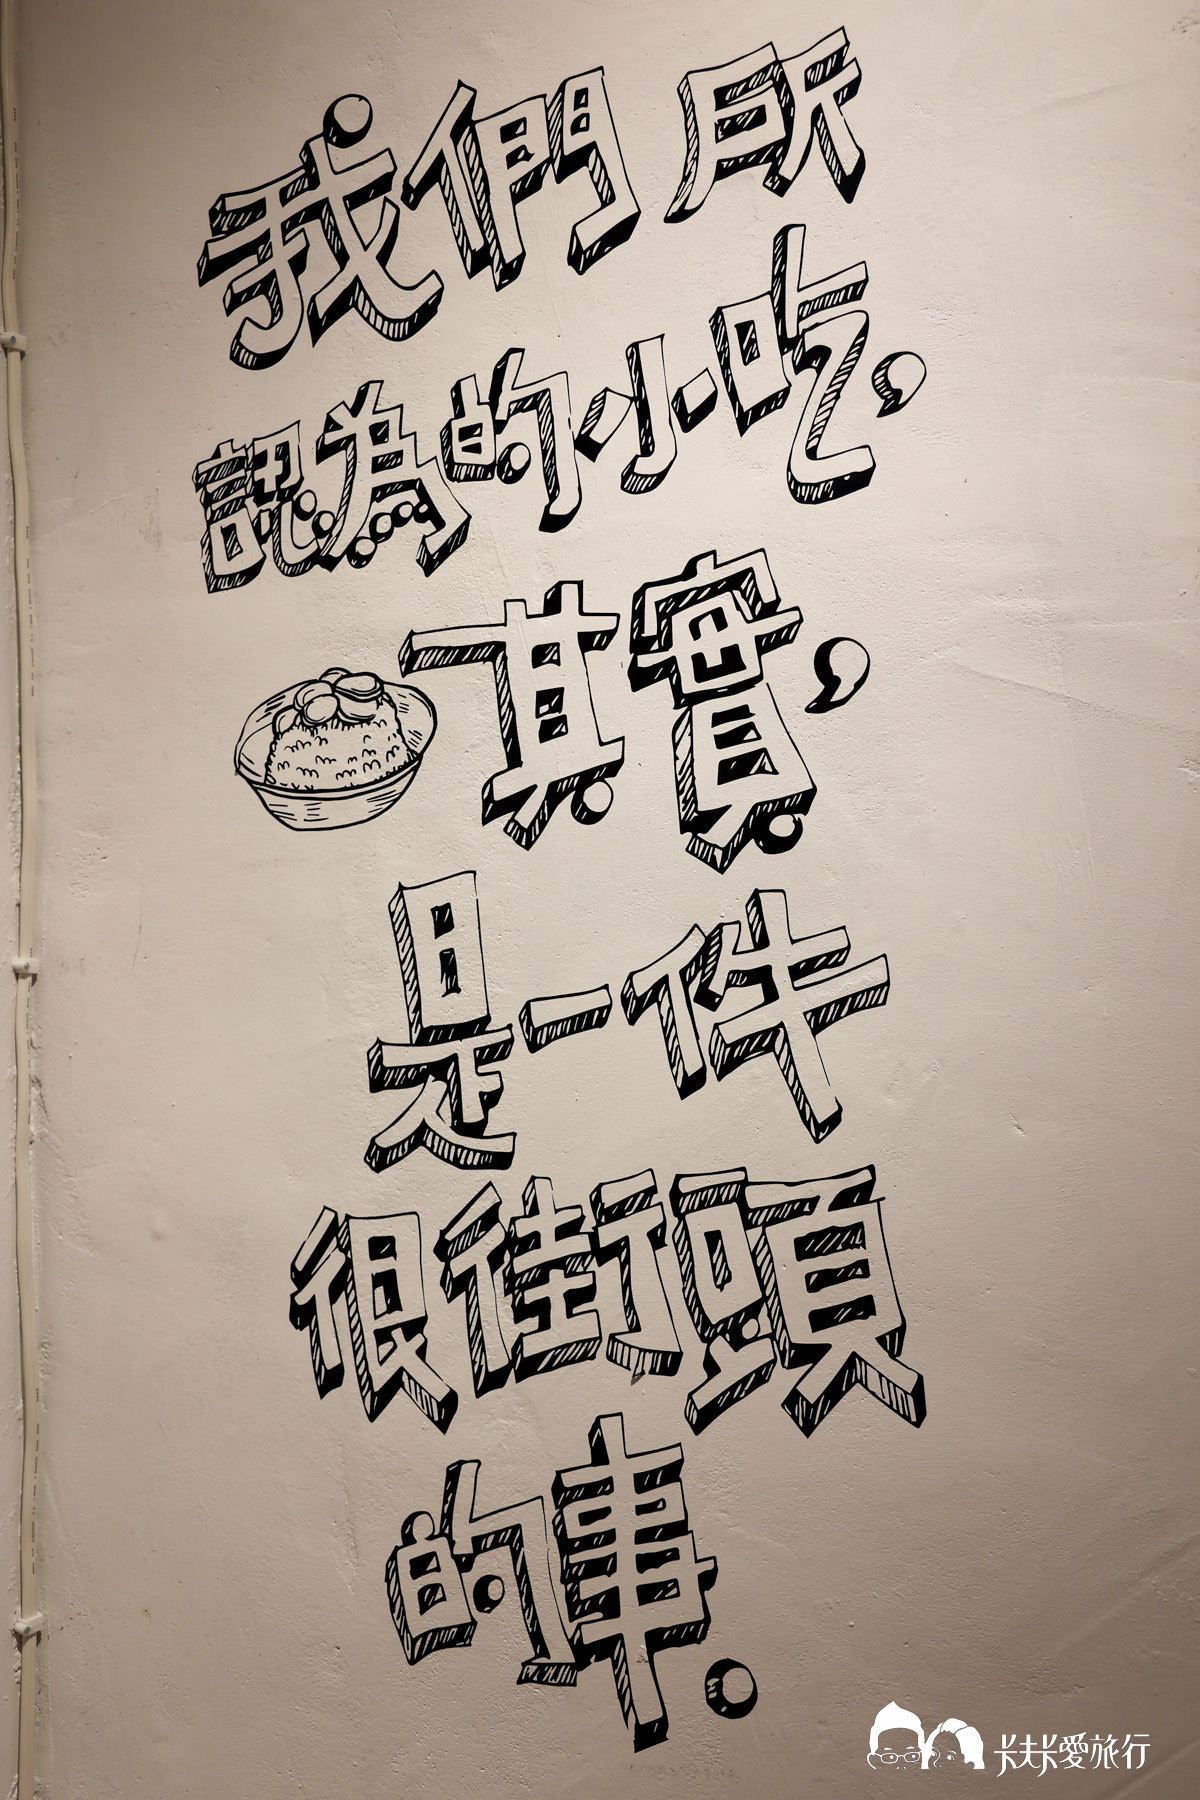 我們所
認為的小吃，
其實，
是一件
很街頭
的事。
卡夫卡愛旅行